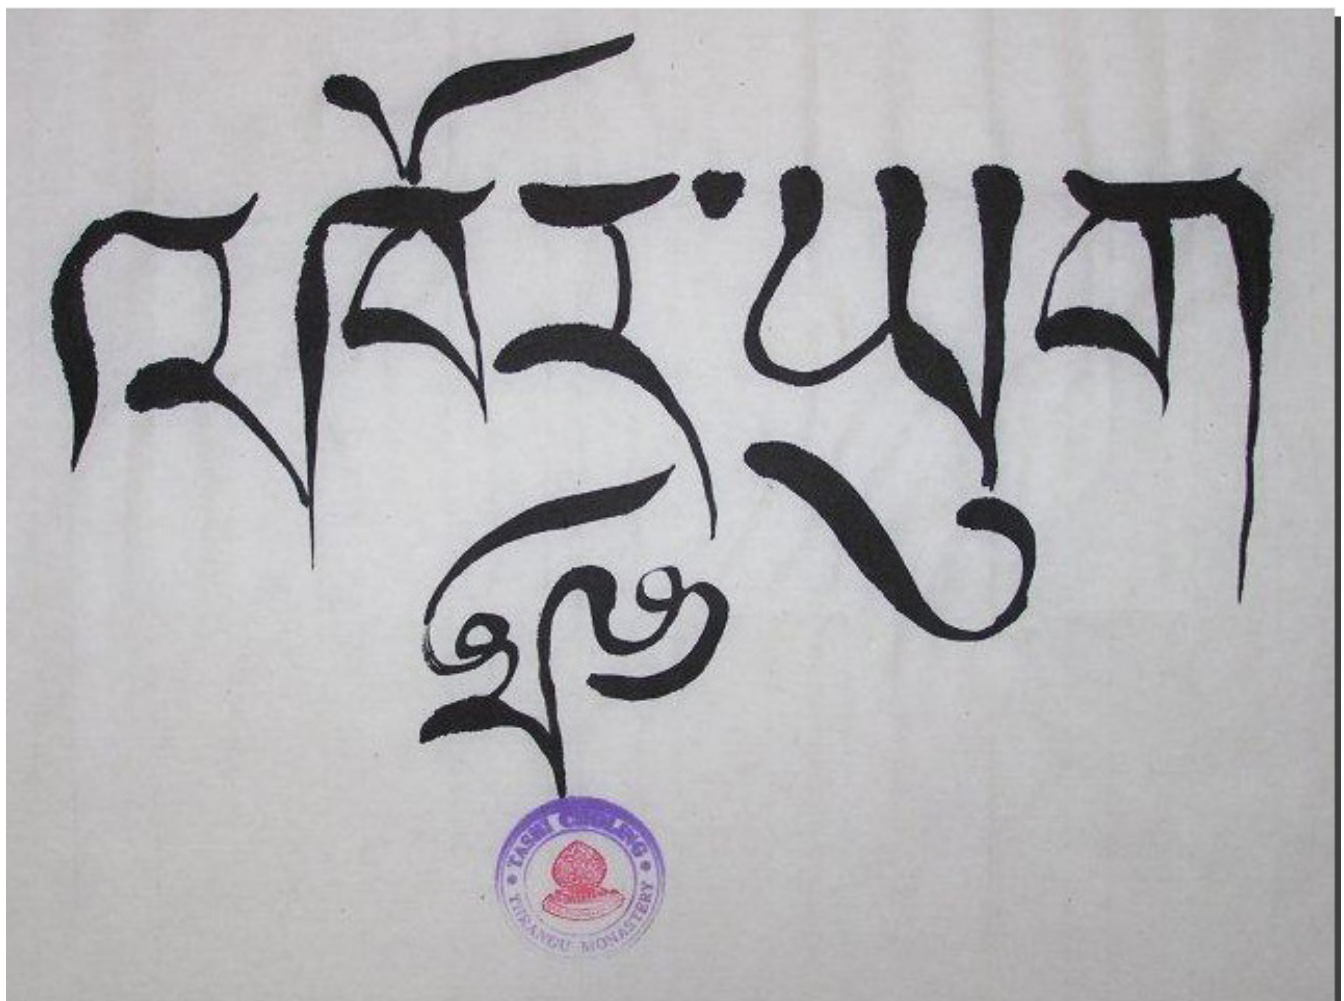 འཁོར་ཡུག
TASHI CHOLING
THRANGU MONASTERY